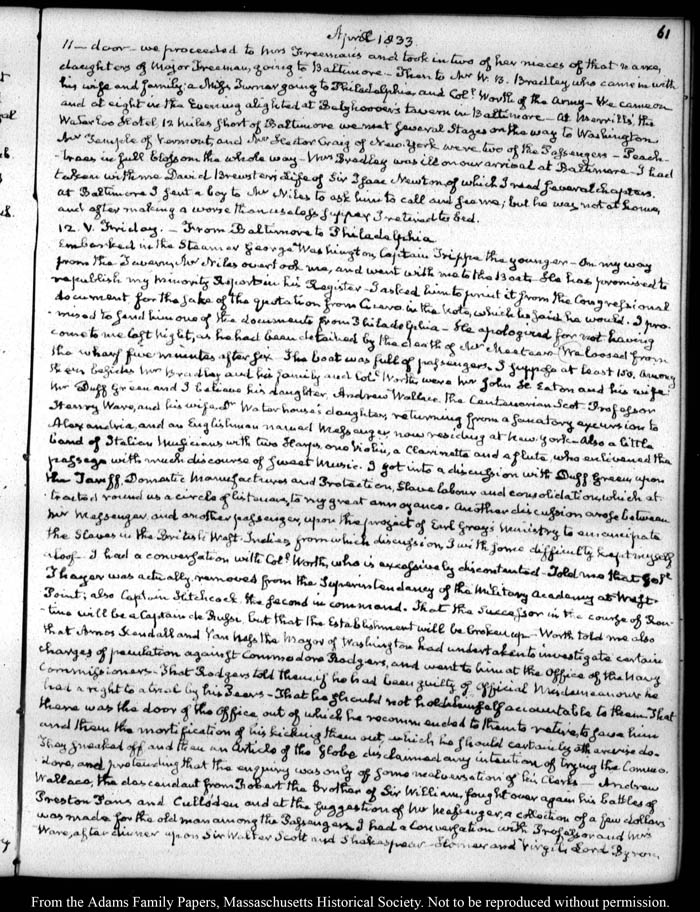 April 1833.
61
11— door— we proceeded to Mrs Freeman's and took in two of her nieces of that name,
daughters of Major Freeman, going to Baltimore— Then to Mr W. B. Bradley, who came in with
his wife and family; a Miss Turner going to Philadelphia, and Coll. Worth of the Army— We came on
and at eight in the Evening alighted at Beltzhoover's tavern in Baltimore— At Merrill's, the
Waterloo Hotel 12 miles short of Baltimore we met several Stages on the way to Washington
Mr Temple of Vermont, and Mr Hector Craig of New-York were two of the Passengers— Peach-
trees in full blossom the whole way— Mrs Bradley was ill on our arrival at Baltimore. I had
taken with me David Brewster's Life of Sir Isaac Newton, of which I read several chapters.
At Baltimore I sent a boy to Mr Niles to ask him to call and see me; but he was not at home,
and after making a worse than useless supper I retired to bed.
12. V. Friday.— From Baltimore to Philadelphia
Embarked in the Steamer George Washington, Captain Trippe the younger— On my way
from the Tavern, Mr Niles overtook me, and went with me to the Boat. He has promised to
republish my Minority Report in his Register— I asked him to print it from the Congressional
document for the sake of the quotation from Cicero in the Note, which he said he would. I pro-
mised to send him one of the documents from Philadelphia— He apologized for not having
come to me last Night, as he had been detained by the death of Mr We loosed from
the wharf five minutes after six— The boat was full of passengers, I suppose at least 150. Among
them besides Mr Bradley and his family and Coll. Worth, were Mr John H. Eaton and his wife
Mr Duff Green and I believe his daughter, Andrew Wallace, the Centenarian Scot— Professor
Henry Ware, and his wife, Dr Waterhouse's daughter, returning from a sanatory excursion to
Alexandria, and an Englishman named Messenger now residing at New-York— Also a little
band of Italian Musicians with two Harps, one Violin, a Clarinette and a flute, who enlivened the
passage with much discourse of sweet Music. I got into a discussion with Duff Green, upon
the Tariff, Domestic Manufactures and Protection, Slave labour and consolidation, which at-
tracted round us a circle of listeners, to my great annoyance. Another discussion arose between
Mr Messenger, and another passenger, upon the project of Earl Grey's Ministry to emancipate
the Slaves in the British West-Indies, from which discussion, I with some difficulty kept myself
aloof— I had a conversation with Coll. Worth, who is excessively discontented— Told me that Coll.
Thayer was actually removed from the Superintendency of the Military Academy at West-
Point; also Captain Hitchcock the second in command. That the Successor in the course of Rou-
tine will be a Captain de Russi, but that the Establishment will be broken up— Worth told me also
that Amos Kendall and Van Ness the Mayor of Washington had undertaken to investigate certain
charges of peculation against Commodore Rodgers, and went to him at the Office of the Navy
Commissioners— That Rodgers told them, if he had been guilty of Official Misdemeanour he
had a right to a trial by his Peers— That he should not hold himself accountable to them. That
there was the door of the Office, out of which he recommended to them to retire, to save him
and them the mortification of his kicking them out, which he should certainly otherwise do—
They sneaked off and then an Article of the Globe disclaimed any intention of trying the Commo-
dore, and pretending that the enquiry was only of some malversation of his Clerks— Andrew
Wallace, the descendant from Robert the Brother of Sir William, fought over again his battles of
Preston Pans and Culloden and at the suggestion of Mr Messenger, a collection of a few dollars
was made for the old man among the Passengers. I had a Conversation with Professor and Mrs
Ware, after dinner upon Sir Walter Scott and Shakespear— Homer and Virgil, Lord Byron,
From the Adams Family Papers, Massachusetts Historical Society. Not to be reproduced without permission.